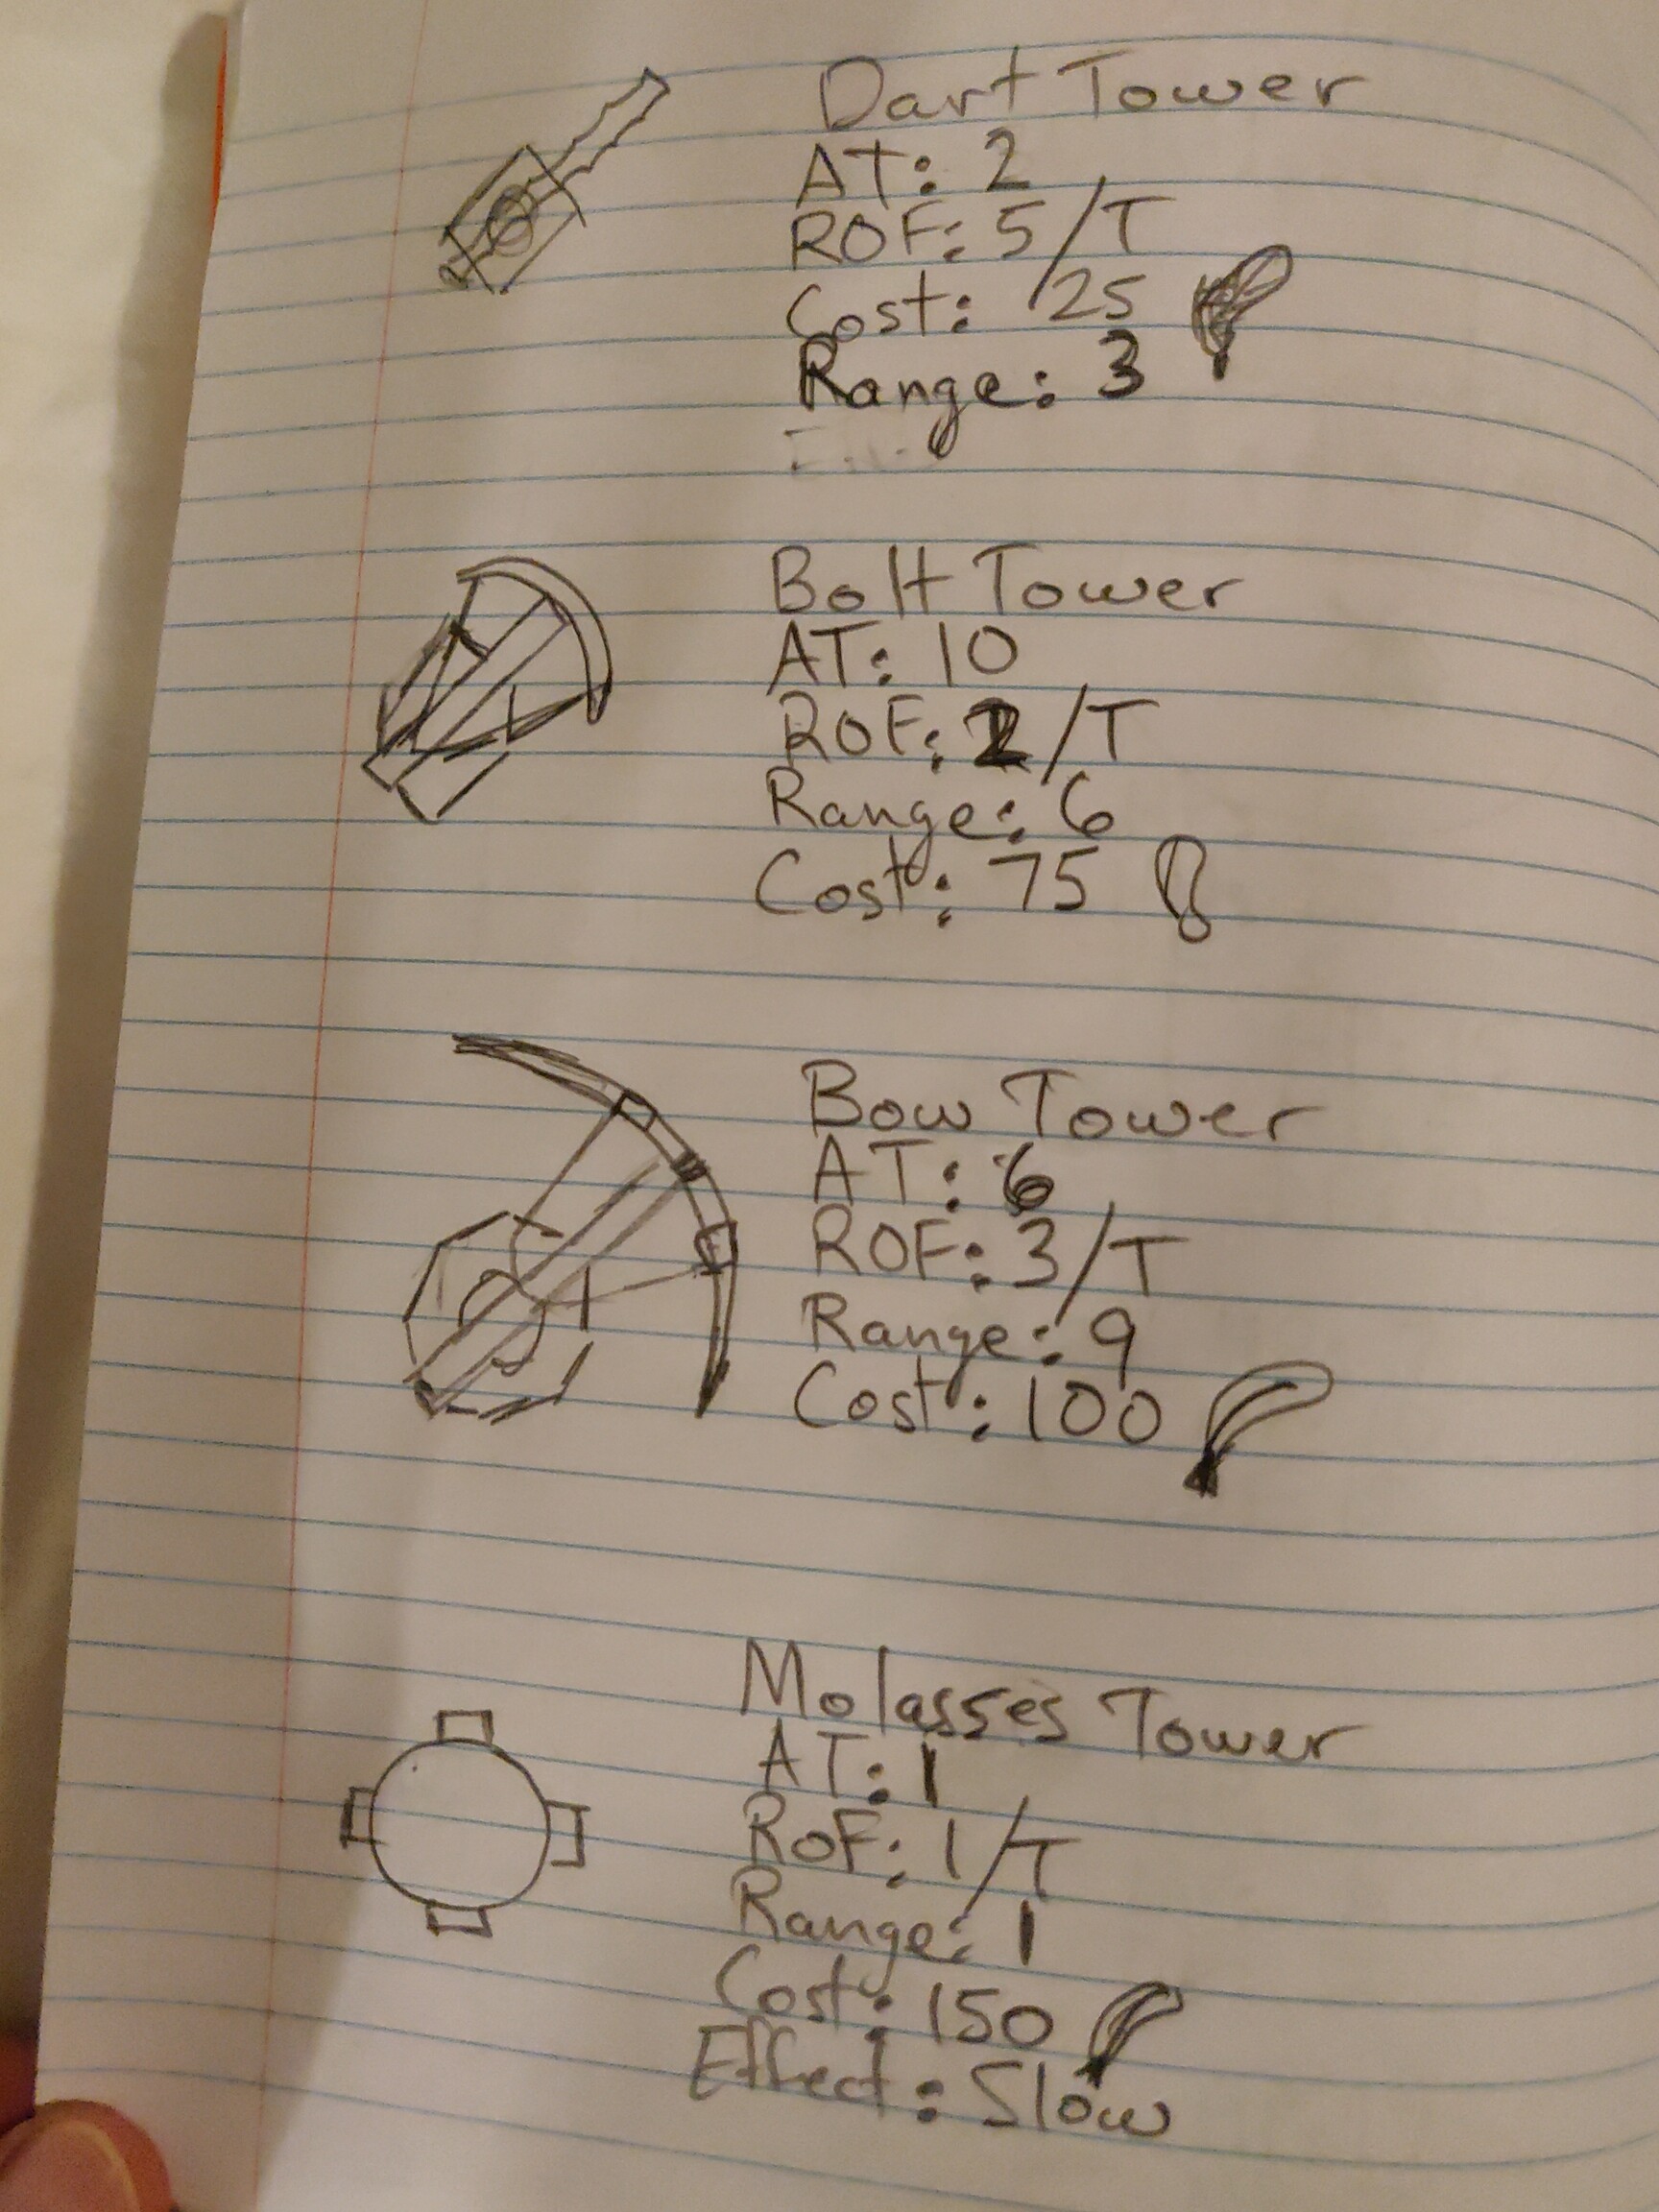 Dart Tower
AT: 2
ROF: 5/T
Cost: 25
Range: 3
Bolt Tower
AT: 10
ROF: 2/T
Range: 6
Cost: 75
Bow Tower
AT: 6
ROF: 3/T
Range: 9
Cost: 100
Molasses Tower
AT: 1
ROF: 1/T
Range: 1
Cost: 150
Effect: Slow